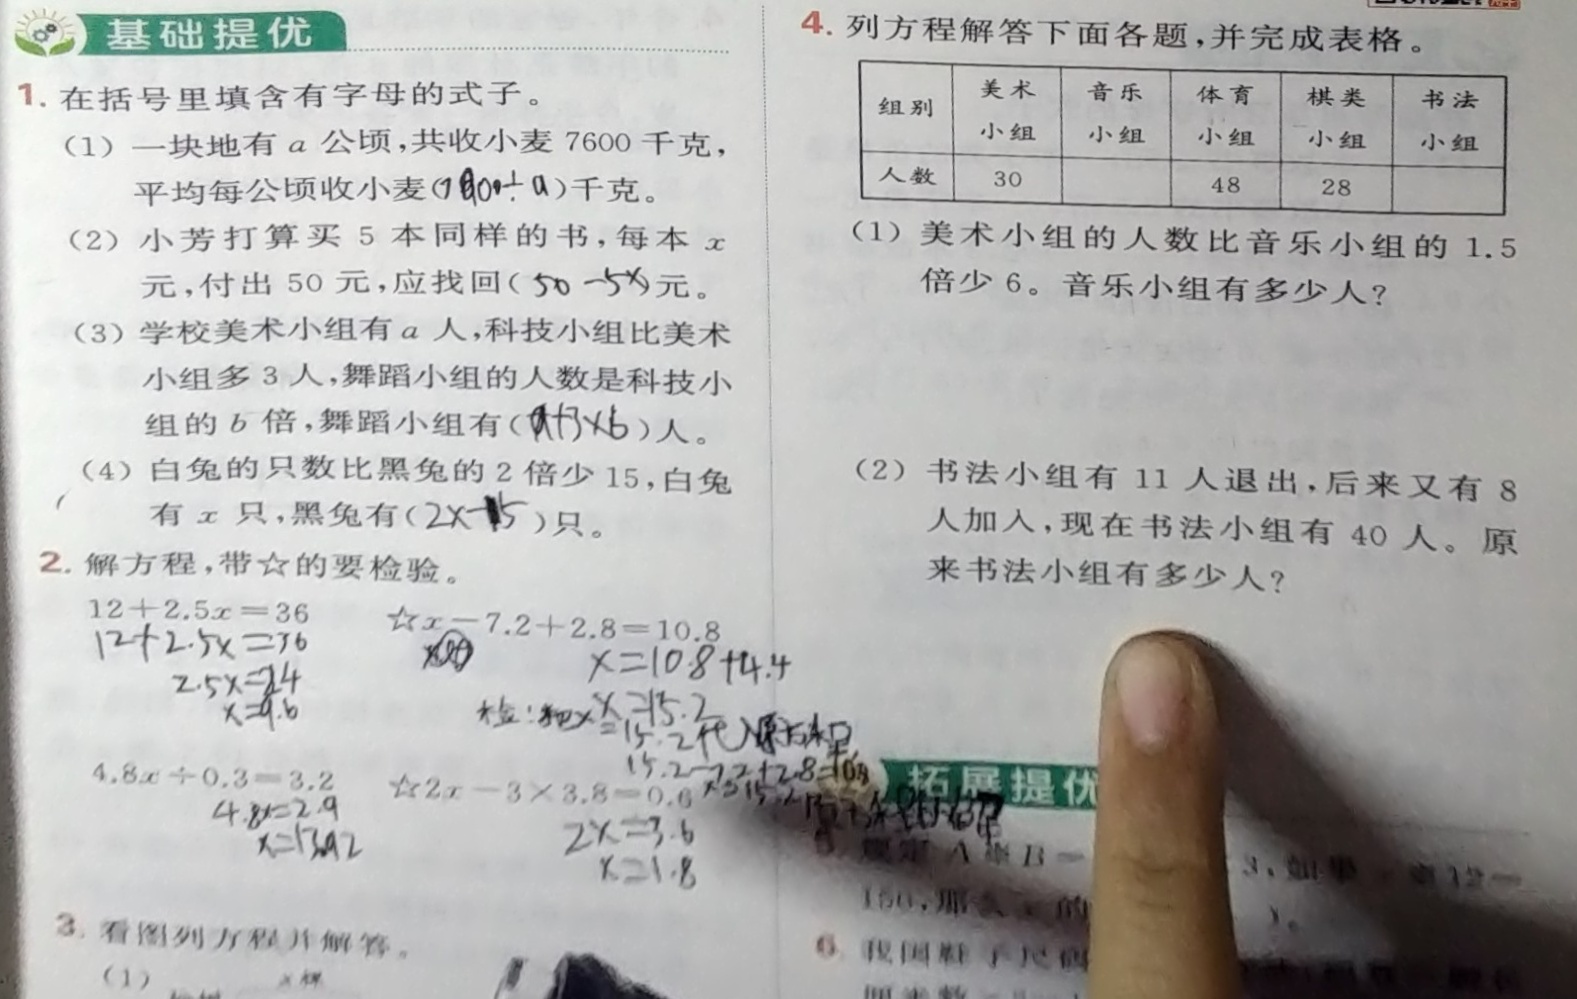 基础提优
1. 在括号里填含有字母的式子。
(1) 一块地有 a 公顷,共收小麦 7600 千克,
平均每公顷收小麦(7600÷a)千克。
(2) 小芳打算买 5 本同样的书,每本 x
元,付出 50 元,应找回(50-5x)元。
(3) 学校美术小组有 a 人,科技小组比美术
小组多 3 人,舞蹈小组的人数是科技小
组的 b 倍,舞蹈小组有(a+3×b)人。
(4) 白兔的只数比黑兔的 2 倍少 15,白兔
有 x 只,黑兔有(2x-15)只。
2. 解方程,带☆的要检验。
12+2.5x=36 ☆x-7.2+2.8=10.8
12+2.5x=36
x=10.8+4.4
2.5x=24
x=9.6
x=15.2
检:把x=15.2代入原方程
15.2-7.2+2.8=10.8
4.8x÷0.3=3.2 ☆2x-3×3.8=0.6
4.8x=2.9
2x=3.6
x=1.8
3. 看图列方程并解答。
(1)
4. 列方程解答下面各题,并完成表格。
组别 美术小组 音乐小组 体育小组 棋类小组 书法小组
人数 30 48 28
(1) 美术小组的人数比音乐小组的 1.5
倍少 6。音乐小组有多少人?
(2) 书法小组有 11 人退出,后来又有 8
人加入,现在书法小组有 40 人。原
来书法小组有多少人?
拓展提优
3,如果
那么 的 )。
6. 我国鞋子尺码